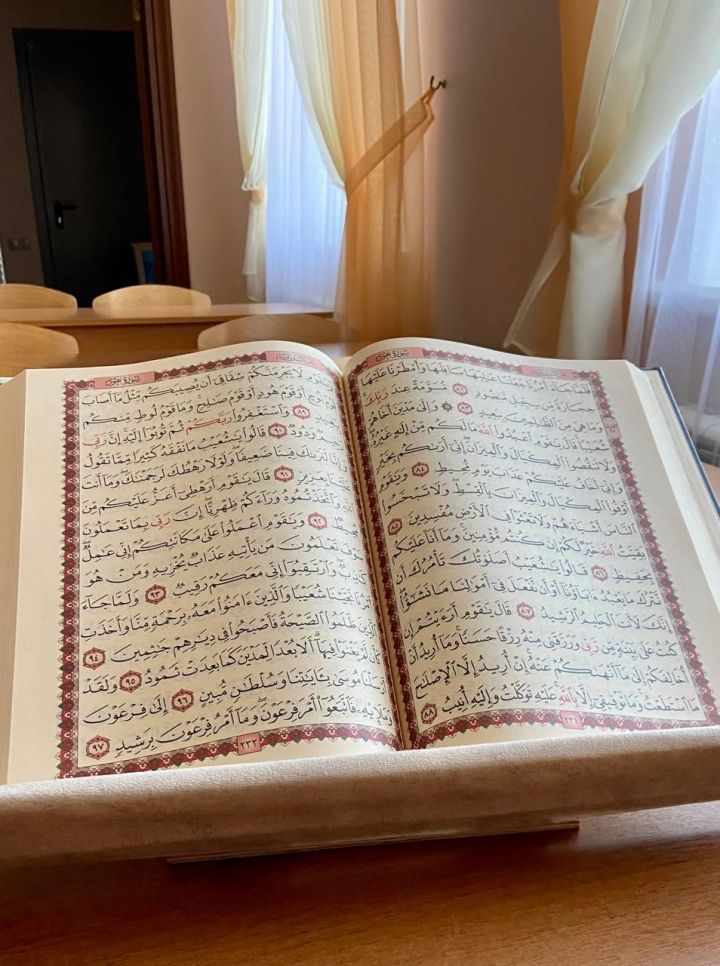 سُورَةُ هُودٍ
فَلَمَّا جَآءَ أَمْرُنَا جَعَلْنَا عَٰلِيَهَا سَافِلَهَا وَأَمْطَرْنَا عَلَيْهَا
حِجَارَةً مِّن سِجِّيلٍ مَّنضُودٍ ٨٢ مُّسَوَّمَةً عِندَ رَبِّكَ
وَمَا هِيَ مِنَ ٱلظَّٰلِمِينَ بِبَعِيدٍ ٨٣ ۞ وَإِلَىٰ مَدْيَنَ أَخَاهُمْ
شُعَيْبًا قَالَ يَٰقَوْمِ ٱعْبُدُوا۟ ٱللَّهَ مَا لَكُم مِّنْ إِلَٰهٍ غَيْرُهُۥ
وَلَا تَنقُصُوا۟ ٱلْمِكْيَالَ وَٱلْمِيزَانَ إِنِّىٓ أَرَىٰكُم بِخَيْرٍ
وَإِنِّىٓ أَخَافُ عَلَيْكُمْ عَذَابَ يَوْمٍ مُّحِيطٍ ٨٤ وَيَٰقَوْمِ
أَوْفُوا۟ ٱلْمِكْيَالَ وَٱلْمِيزَانَ بِٱلْقِسْطِ وَلَا تَبْخَسُوا۟
ٱلنَّاسَ أَشْيَآءَهُمْ وَلَا تَعْثَوْا۟ فِى ٱلْأَرْضِ مُفْسِدِينَ ٨٥
بَقِيَّتُ ٱللَّهِ خَيْرٌ لَّكُمْ إِن كُنتُم مُّؤْمِنِينَ وَمَآ أَنَا۠ عَلَيْكُم
بِحَفِيظٍ ٨٦ قَالُوا۟ يَٰشُعَيْبُ أَصَلَوٰتُكَ تَأْمُرُكَ أَن
نَّتْرُكَ مَا يَعْبُدُ ءَابَآؤُنَآ أَوْ أَن نَّفْعَلَ فِىٓ أَمْوَٰلِنَا مَا نَشَٰٓؤُا۟
إِنَّكَ لَأَنتَ ٱلْحَلِيمُ ٱلرَّشِيدُ ٨٧ قَالَ يَٰقَوْمِ أَرَءَيْتُمْ إِن
كُنتُ عَلَىٰ بَيِّنَةٍ مِّن رَّبِّى وَرَزَقَنِى مِنْهُ رِزْقًا حَسَنًا وَمَآ أُرِيدُ أَنْ
أُخَالِفَكُمْ إِلَىٰ مَآ أَنْهَىٰكُمْ عَنْهُ إِنْ أُرِيدُ إِلَّا ٱلْإِصْلَٰحَ
مَا ٱسْتَطَعْتُ وَمَا تَوْفِيقِىٓ إِلَّا بِٱللَّهِ عَلَيْهِ تَوَكَّلْتُ وَإِلَيْهِ أُنِيبُ ٨٨
٢٣١
سُورَةُ هُودٍ
وَيَٰقَوْمِ لَا يَجْرِمَنَّكُمْ شِقَاقِىٓ أَن يُصِيبَكُم مِّثْلُ مَآ أَصَابَ
قَوْمَ نُوحٍ أَوْ قَوْمَ هُودٍ أَوْ قَوْمَ صَٰلِحٍ وَمَا قَوْمُ لُوطٍ مِّنكُم
٨٩ وَٱسْتَغْفِرُوا۟ رَبَّكُمْ ثُمَّ تُوبُوٓا۟ إِلَيْهِ إِنَّ رَبِّى
رَحِيمٌ وَدُودٌ ٩٠ قَالُوا۟ يَٰشُعَيْبُ مَا نَفْقَهُ كَثِيرًا مِّمَّا تَقُولُ
وَإِنَّا لَنَرَىٰكَ فِينَا ضَعِيفًا وَلَوْلَا رَهْطُكَ لَرَجَمْنَٰكَ وَمَآ أَنتَ
عَلَيْنَا بِعَزِيزٍ ٩١ قَالَ يَٰقَوْمِ أَرَهْطِىٓ أَعَزُّ عَلَيْكُم مِّنَ
ٱللَّهِ وَٱتَّخَذْتُمُوهُ وَرَآءَكُمْ ظِهْرِيًّا إِنَّ رَبِّى بِمَا تَعْمَلُونَ
٩٢ وَيَٰقَوْمِ ٱعْمَلُوا۟ عَلَىٰ مَكَانَتِكُمْ إِنِّى عَٰمِلٌ
سَوْفَ تَعْلَمُونَ مَن يَأْتِيهِ عَذَابٌ يُخْزِيهِ وَمَنْ هُوَ
كَٰذِبٌ وَٱرْتَقِبُوٓا۟ إِنِّى مَعَكُمْ رَقِيبٌ ٩٣ وَلَمَّا جَآءَ
أَمْرُنَا نَجَّيْنَا شُعَيْبًا وَٱلَّذِينَ ءَامَنُوا۟ مَعَهُۥ بِرَحْمَةٍ مِّنَّا وَأَخَذَتِ
ٱلَّذِينَ ظَلَمُوا۟ ٱلصَّيْحَةُ فَأَصْبَحُوا۟ فِى دِيَٰرِهِمْ جَٰثِمِينَ ٩٤
كَأَن لَّمْ يَغْنَوْا۟ فِيهَآ أَلَا بُعْدًا لِّمَدْيَنَ كَمَا بَعِدَتْ ثَمُودُ ٩٥ وَلَقَدْ
أَرْسَلْنَا مُوسَىٰ بِـَٔايَٰتِنَا وَسُلْطَٰنٍ مُّبِينٍ ٩٦ إِلَىٰ فِرْعَوْنَ
وَمَلَإِي۟هِۦ فَٱتَّبَعُوٓا۟ أَمْرَ فِرْعَوْنَ وَمَآ أَمْرُ فِرْعَوْنَ بِرَشِيدٍ ٩٧
٢٣٢